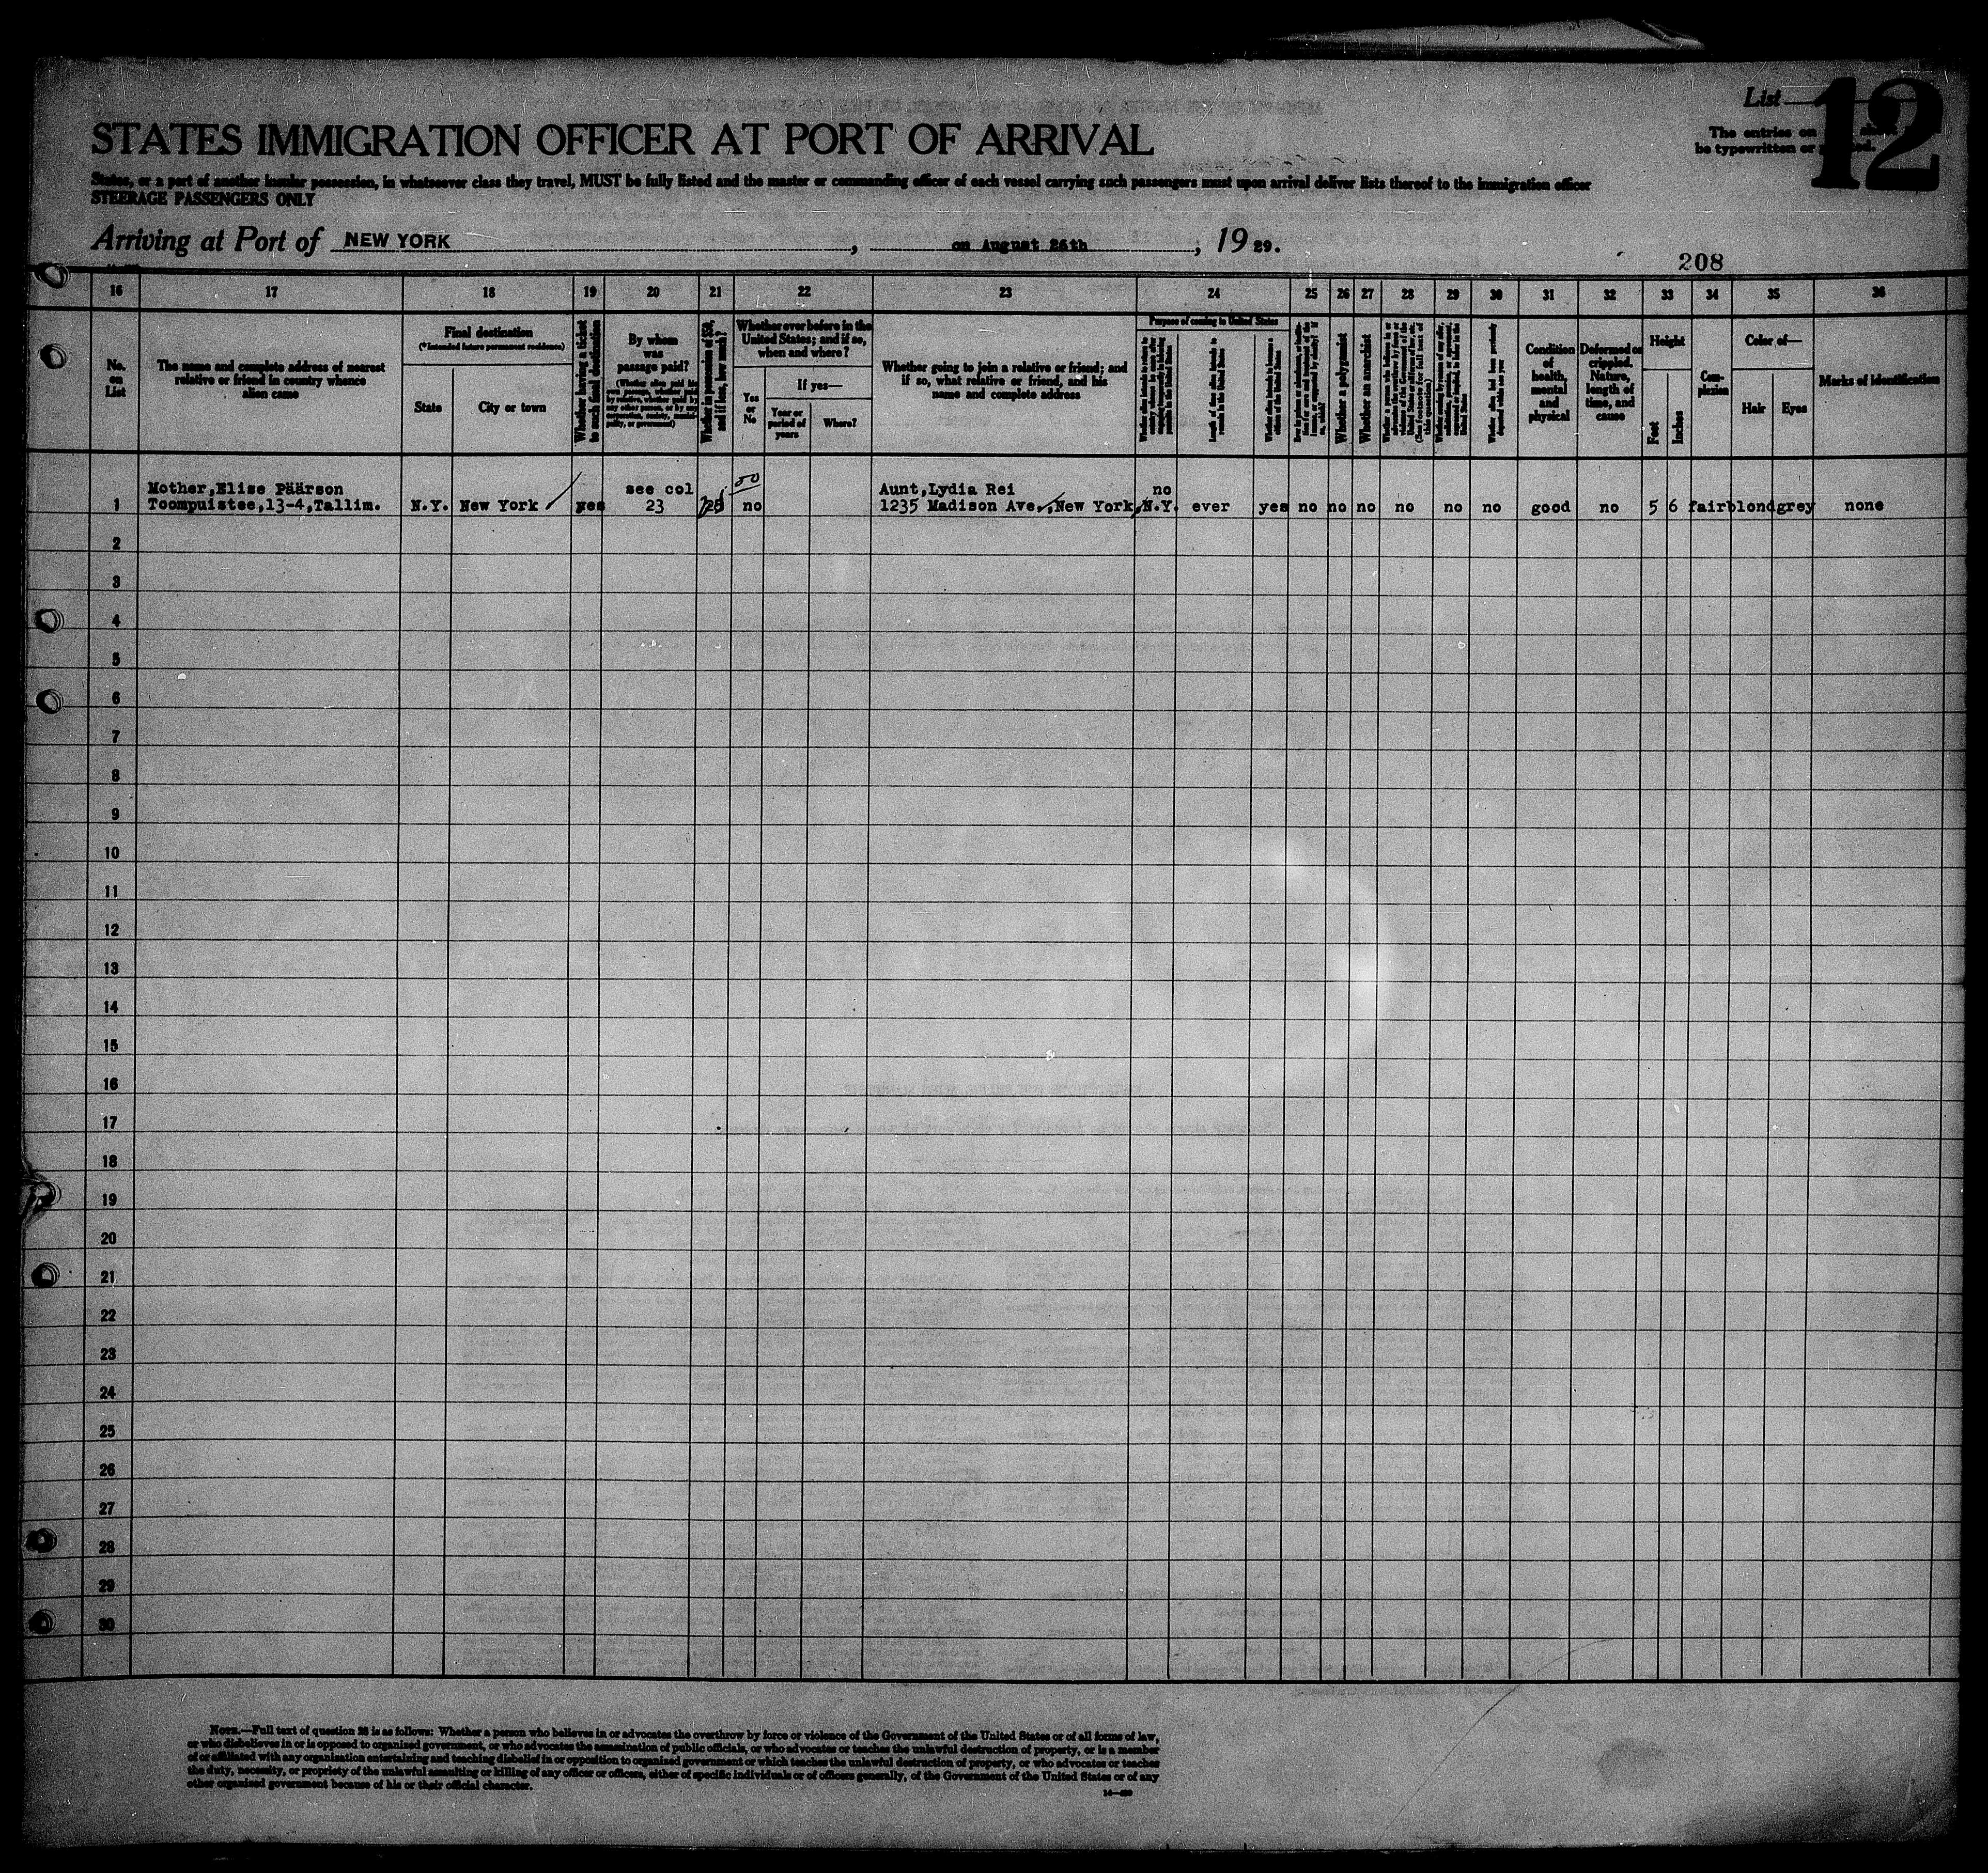 List
12
The entries on
be typewritten or
STATES IMMIGRATION OFFICER AT PORT OF ARRIVAL
States, or a port of another insular possession, in whatsoever class they travel, MUST be fully listed and the master or commanding officer of each vessel carrying such passengers must upon arrival deliver lists thereof to the immigration officer
STEERAGE PASSENGERS ONLY
Arriving at Port of NEW YORK, on August 26th, 19 29.
208
16 17 18 19 20 21 22 23 24 25 26 27 28 29 30 31 32 33 34 35 36
No. on List
The name and complete address of nearest relative or friend in country whence alien came
Final destination
(*Intended future permanent residence)
State
City or town
Whether having a ticket to such final destination
By whom was passage paid?
(Whether alien paid his own passage, whether paid by relative, whether paid by any other person, or by any corporation, society, municipality, or government)
Whether in possession of $50, and if less, how much?
Whether ever before in the United States; and if so, when and where?
Yes or No
If yes—
Year or period of years
Where?
Whether going to join a relative or friend; and if so, what relative or friend, and his name and complete address
Purpose of coming to United States
Length of time alien intends to remain in the United States
Whether alien intends to become a citizen of the United States
Whether a polygamist
Whether an anarchist
Whether alien had been previously deported within one year
Condition of health, mental and physical
Deformed or crippled. Nature, length of time, and cause
Height
Feet
Inches
Complexion
Color of—
Hair
Eyes
Marks of identification
Mother,Elise Päärson see col 50 Aunt,Lydia Rei no
1 Toompuistee,13-4,Tallim. N.Y. New York yes 23 25 no 1235 Madison Ave.,New York,N.Y. ever yes no no no no no no good no 5 6 fair blond grey none
2
3
4
5
6
7
8
9
10
11
12
13
14
15
16
17
18
19
20
21
22
23
24
25
26
27
28
29
30
NOTE.—Full text of question 28 is as follows: Whether a person who believes in or advocates the overthrow by force or violence of the Government of the United States or of all forms of law,
or who disbelieves in or is opposed to organized government, or who advocates the assassination of public officials, or who advocates or teaches the unlawful destruction of property, or is a member
of or affiliated with any organization entertaining and teaching disbelief in or opposition to organized government or which teaches the unlawful destruction of property, or who advocates or teaches
the duty, necessity, or propriety of the unlawful assaulting or killing of any officer or officers, either of specific individuals or of officers generally, of the Government of the United States or of any
other organized government because of his or their official character.